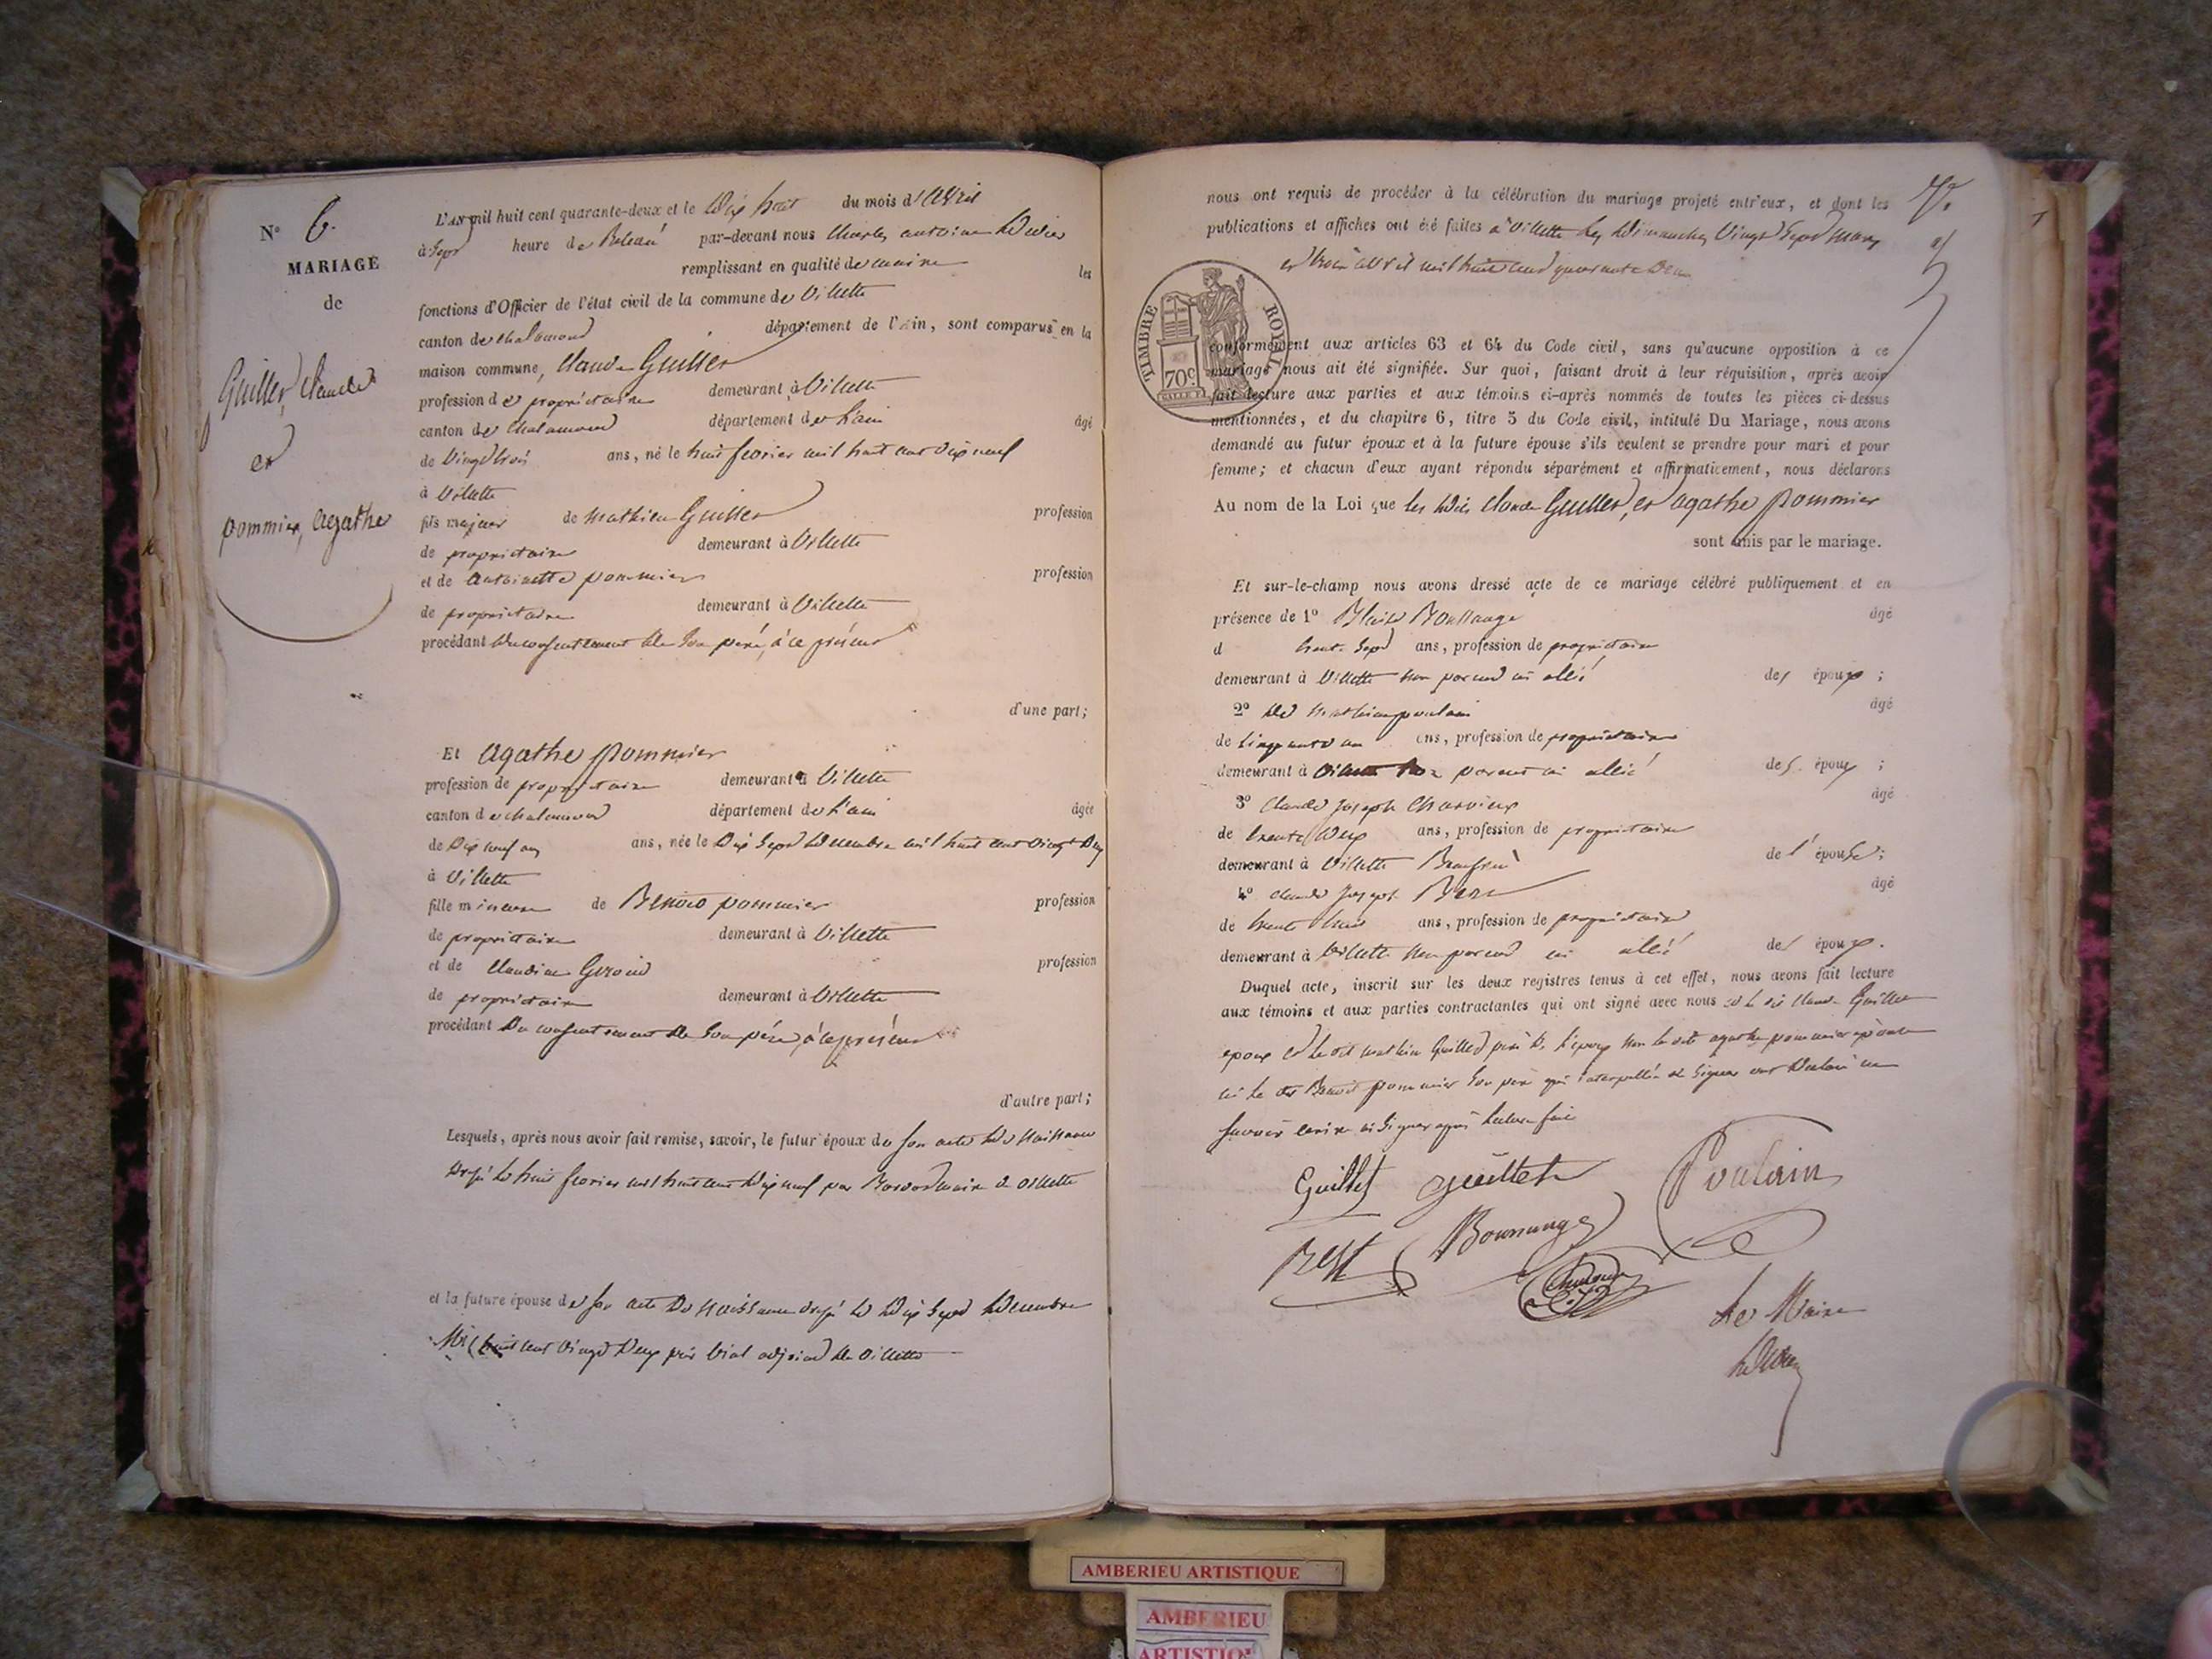 N° 6.
MARIAGE
de
Guillet, Claude
et
pommier, agathe
L'AN mil huit cent quarante-deux et le dix huit du mois d'avril
à sept heure de Relevé par-devant nous Charles antoine
remplissant en qualité de maire les
fonctions d'Officier de l'état civil de la commune de Villette
canton de chalamond département de l'Ain, sont comparus en la
maison commune, Claude Guillet
profession de propriétaire demeurant à Villette
canton de chalamond département de l'ain âgé
de vingt trois ans, né le huit fevrier mil huit cent dix neuf
à Villette
fils majeur de mathieu Guillet profession
de propriétaire demeurant à Villette
et de antoinette pommier profession
de propriétaire demeurant à Villette
procédant du consentement de son père, à ce présent
d'une part;
Et agathe pommier
profession de propriétaire demeurant à Villette
canton de chalamond département de l'ain âgée
de dix neuf ans ans, née le dix sept decembre mil huit cent vingt deux
à Villette
fille mineure de Benoit pommier profession
de propriétaire demeurant à Villette
et de Claudine profession
de propriétaire demeurant à Villette
procédant du consentement de son père, à ce présent
d'autre part;
Lesquels, après nous avoir fait remise, savoir, le futur époux de son acte de naissance
le huit fevrier mil huit cent dix neuf par maire de villette
et la future épouse de son acte de naissance le dix sept decembre
mil huit cent vingt deux par adjoint de villette
nous ont requis de procéder à la célébration du mariage projeté entr'eux, et dont les
publications et affiches ont été faites à Villette les dimanches vingt sept mars
et trois avril mil huit cent quarante deux
TIMBRE ROYAL
70c
conformément aux articles 63 et 64 du Code civil, sans qu'aucune opposition à ce
mariage nous ait été signifiée. Sur quoi, faisant droit à leur réquisition, après avoir
fait lecture aux parties et aux témoins ci-après nommés de toutes les pièces ci-dessus
mentionnées, et du chapitre 6, titre 5 du Code civil, intitulé Du Mariage, nous avons
demandé au futur époux et à la future épouse s'ils veulent se prendre pour mari et pour
femme; et chacun d'eux ayant répondu séparément et affirmativement, nous déclarons
Au nom de la Loi que les dits Claude Guillet, et agathe pommier
sont unis par le mariage.
Et sur-le-champ nous avons dressé acte de ce mariage célébré publiquement et en
présence de 1° âgé
d trente sept ans, profession de propriétaire
demeurant à Villette non parent ni allié des époux;
2° mathieu poulain âgé
de cinquante un ans, profession de propriétaire
demeurant à Villette non parent ni allié des époux;
3° Claude joseph âgé
de trente deux ans, profession de propriétaire
demeurant à Villette Beaufrère de l'épouse;
4° Claude joseph âgé
de trente trois ans, profession de propriétaire
demeurant à Villette non parent ni allié des époux.
Duquel acte, inscrit sur les deux registres tenus à cet effet, nous avons fait lecture
aux témoins et aux parties contractantes qui ont signé avec nous et le dit Claude Guillet
epoux et le dit mathieu Guillet père de l'époux non la dite agathe pommier épouse
ni le dit Benoit pommier son père qui interpellés de signer ont declaré ne
savoir ecrire ni signer après lecture faite
Guillet guillet Poulain
Best
Le Maire
AMBERIEU ARTISTIQUE
AMBERIEU
ARTISTIQ